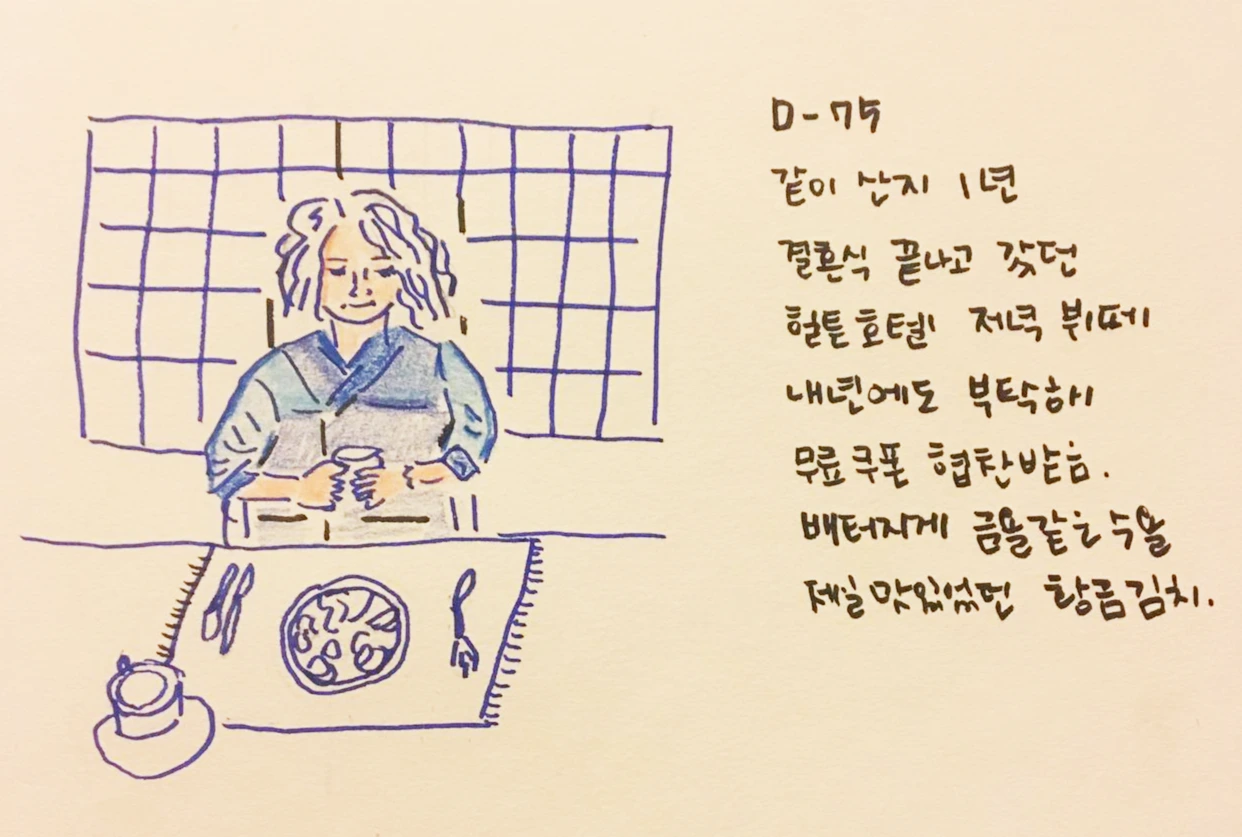 D-75
같이 산지 1년
결혼식 끝나고 갔던
힐튼호텔 저녁 뷔페
내년에도 부탁해
무료쿠폰 협찬받음.
배터지게 금욜같은 수욜
제일 맛있었던 황금김치.